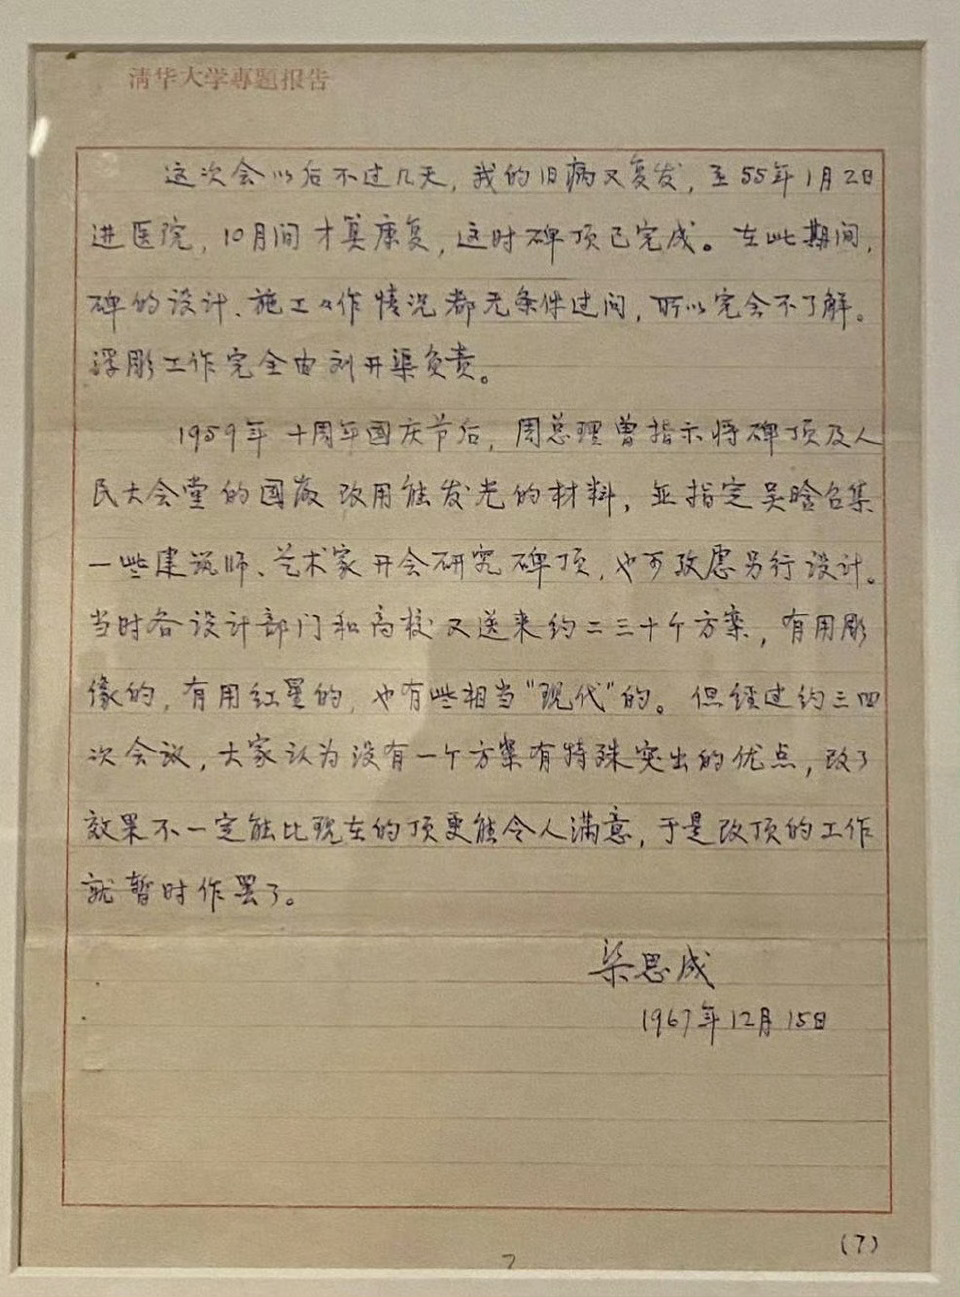 清华大学專題报告
这次会以后不过几天，我的旧病又复发，至55年1月2日
进医院，10月间才算康复，这时碑顶已完成。在此期间，
碑的设计、施工々作情况都无条件过问，所以完全不了解。
浮彫工作完全由刘开渠负责。
1959年十周年国庆节后，周总理曾指示将碑顶及人
民大会堂的国徽改用能发光的材料，並指定吴晗召集
一些建筑师、艺术家开会研究碑顶，也可考虑另行设计。
当时各设计部门和高校又送来约二三十个方案，有用彫
像的，有用红星的，也有些相当“现代”的。但经过约三四
次会议，大家认为没有一个方案有特殊突出的优点，改了
效果不一定能比现在的顶更能令人满意，于是改顶的工作
就暂时作罢了。
梁思成
1967年12月15日
(7)
7